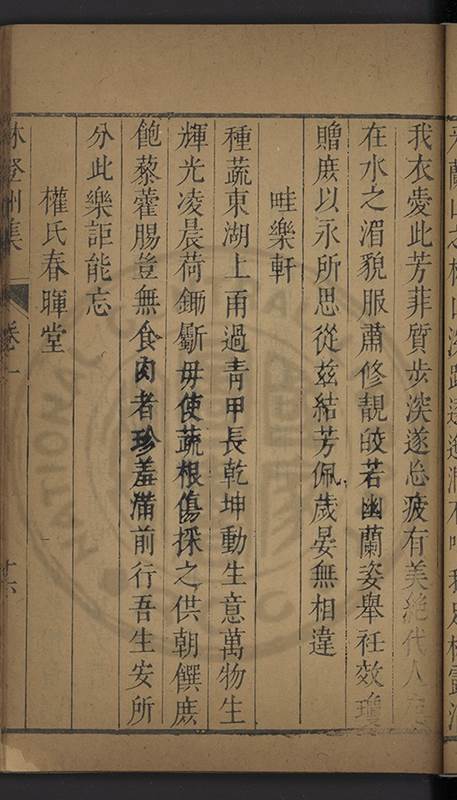 我衣愛此芳菲質步深遂忘疲有美絶代人
在水之湄貌服蕭修靚皎若幽蘭姿舉袵效瓊
贈庶以永所思從兹結芳佩歲晏無相違
畦樂軒
種蔬東湖上雨過靑甲長乾坤動生意萬物生
輝光凌晨荷鋤斸毋使蔬根傷採之供朝饌庶
飽藜藿腸豈無食肉者珍羞備前行吾生安所
分此樂詎能忘
權氏春暉堂
林登州集 卷一